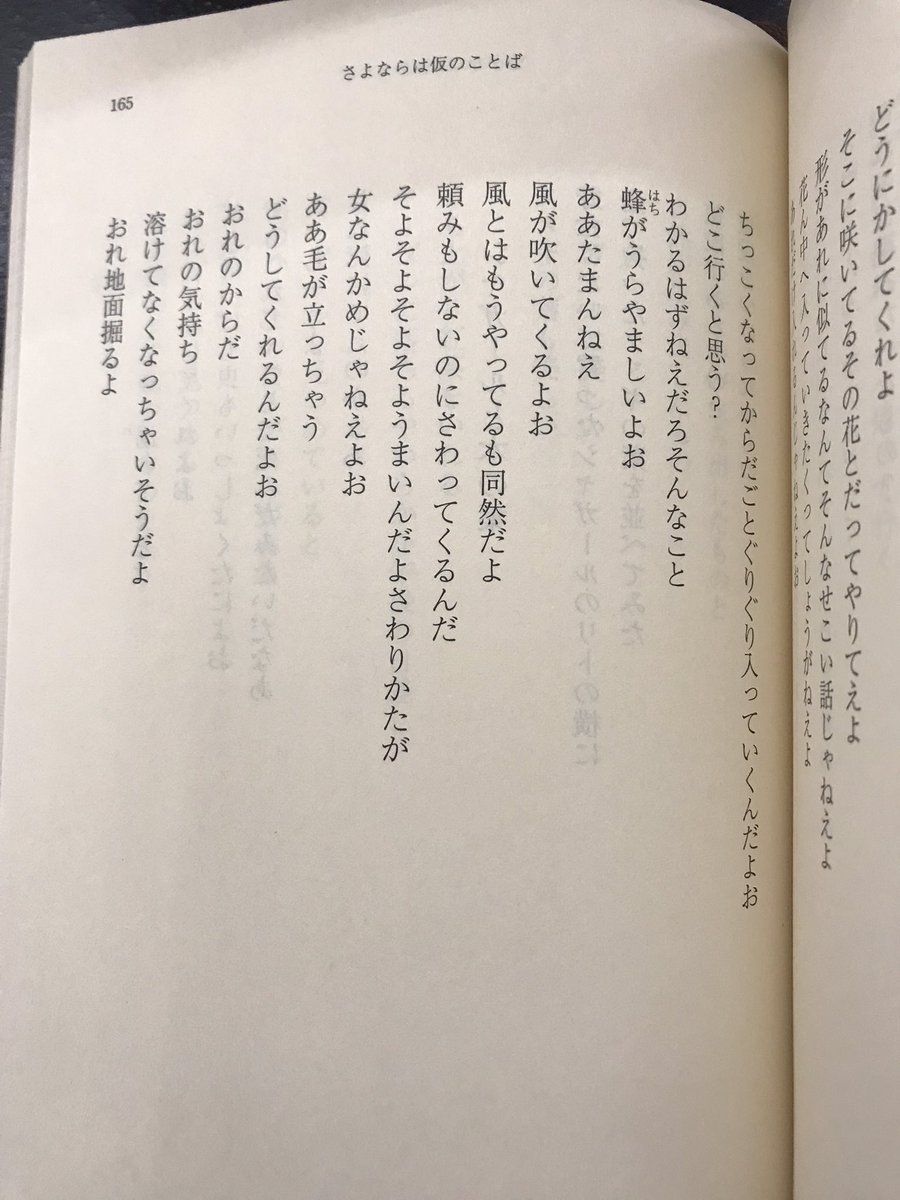 どうにかしてくれよ
そこに咲いてるその花とだってやりてえよ
形があれに似てるなんてそんなせこい話じゃねえよ
花ん中へ入っていきたくってしょうがねえよ
あれだけ入れるんじゃねえよお
さよならは仮のことば
165
ちっこくなってからだごとぐりぐり入っていくんだよお
どこ行くと思う?
わかるはずねえだろそんなこと
蜂がうらやましいよお
はち
ああたまんねえ
風が吹いてくるよお
風とはもうやってるも同然だよ
頼みもしないのにさわってくるんだ
そよそよそよそようまいんだよさわりかたが
女なんかめじゃねえよお
ああ毛が立っちゃう
どうしてくれるんだよお
おれのからだ
おれの気持ち
溶けてなくなっちゃいそうだよ
おれ地面掘るよ